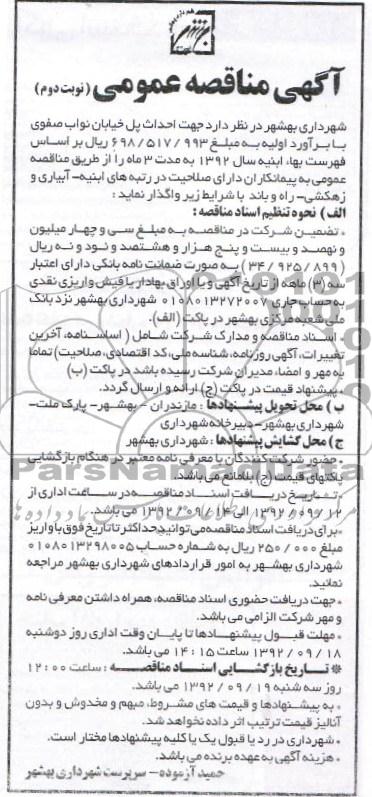 آگهی مناقصه عمومی (نوبت دوم)
شهرداری بهشهر در نظر دارد جهت احداث پل خیابان نواب صفوی
با برآورد اولیه به مبلغ ۶۹۸/۵۱۷/۹۹۳ ریال بر اساس
فهرست بها، ابنیه سال ۱۳۹۲ به مدت ۳ ماه را از طریق مناقصه
عمومی به پیمانکاران دارای صلاحیت در رتبه های ابنیه- آبیاری و
زهکشی- راه و باند با شرایط زیر واگذار نماید:
الف) نحوه تنظیم اسناد مناقصه:
- تضمین شرکت در مناقصه به مبلغ سی و چهار میلیون
و نهصد و بیست و پنج هزار و هشتصد و نود و نه ریال
(۳۴/۹۲۵/۸۹۹) به صورت ضمانت نامه بانکی دارای اعتبار
سه (۳) ماهه از تاریخ آگهی و یا اوراق بهادار یا فیش واریزی نقدی
به حساب جاری ۰۱۰۸۰۱۳۲۷۲۰۰۷ شهرداری بهشهر نزد بانک
ملی شعبه مرکزی بهشهر در پاکت (الف).
- اسناد مناقصه و مدارک شرکت شامل (اساسنامه، آخرین
تغییرات، آگهی روزنامه، شناسه ملی، کد اقتصادی، صلاحیت) تماما
به مهر و امضاء مدیران شرکت رسیده باشد در پاکت (ب)
- پیشنهاد قیمت در پاکت (ج) ارائه و ارسال گردد.
ب) محل تحویل پیشنهادها: مازندران - بهشهر- پارک ملت-
شهرداری بهشهر- دبیرخانه شهرداری
ج) محل گشایش پیشنهادها: شهرداری بهشهر
- حضور شرکت کنندگان با معرفی نامه معتبر در هنگام بازگشایی
پاکتهای قیمت (ج) بلامانع می باشد.
- تاریخ دریافت اسناد مناقصه در ساعت اداری از
۱۳۹۲/۰۹/۱۲ الی ۱۳۹۲/۰۹/۱۴ می باشد.
- برای دریافت اسناد مناقصه می توانید حداکثر تا تاریخ فوق با واریز
مبلغ ۲۵۰/۰۰۰ ریال به شماره حساب ۰۱۰۸۰۱۳۲۹۸۰۰۵
شهرداری بهشهر به امور قراردادهای شهرداری بهشهر مراجعه
نمایند.
- جهت دریافت حضوری اسناد مناقصه، همراه داشتن معرفی نامه
و مهر شرکت الزامی می باشد.
- مهلت قبول پیشنهادها تا پایان وقت اداری روز دوشنبه
۱۳۹۲/۰۹/۱۸ ساعت ۱۴:۱۵ می باشد.
* تاریخ بازگشایی اسناد مناقصه: ساعت ۱۲:۰۰
روز سه شنبه ۱۳۹۲/۰۹/۱۹ می باشد.
- به پیشنهادها و قیمت های مشروط، مبهم و مخدوش و بدون
آنالیز قیمت ترتیب اثر داده نخواهد شد.
- شهرداری در رد یا قبول یک یا کلیه پیشنهادها مختار است.
- هزینه آگهی به عهده برنده می باشد.
حمید آزموده - سرپرست شهرداری بهشهر
ParsNamadData